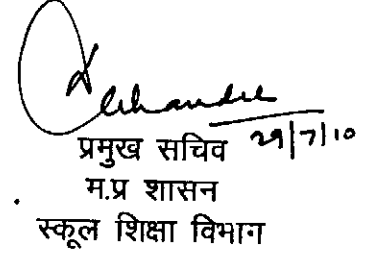 प्रमुख सचिव 29/7/10
म.प्र शासन
स्कूल शिक्षा विभाग